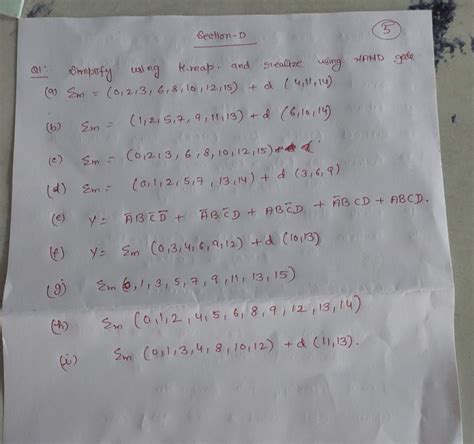 Section-D
5
Q1: Simplify using K.map. and realize using NAND gate
(a) Σm = (0,2,3,6,8,10,12,15) + d (4,11,14)
(b) Σm = (1,2,5,7,9,11,13) + d (6,10,14)
(c) Σm = (0,2,3,6,8,10,12,15)
(d) Σm = (0,1,2,5,7,13,14) + d (3,6,9)
(e) Y = A̅BC̅D̅ + A̅BC̅D + ABC̅D + A̅BCD + ABCD.
(f) Y = Σm (0,3,4,6,9,12) + d (10,13)
(g) Σm (0,1,3,5,7,9,11,13,15)
(h) Σm (0,1,2,4,5,6,8,9,12,13,14)
(i) Σm (0,1,3,4,8,10,12) + d (11,13).